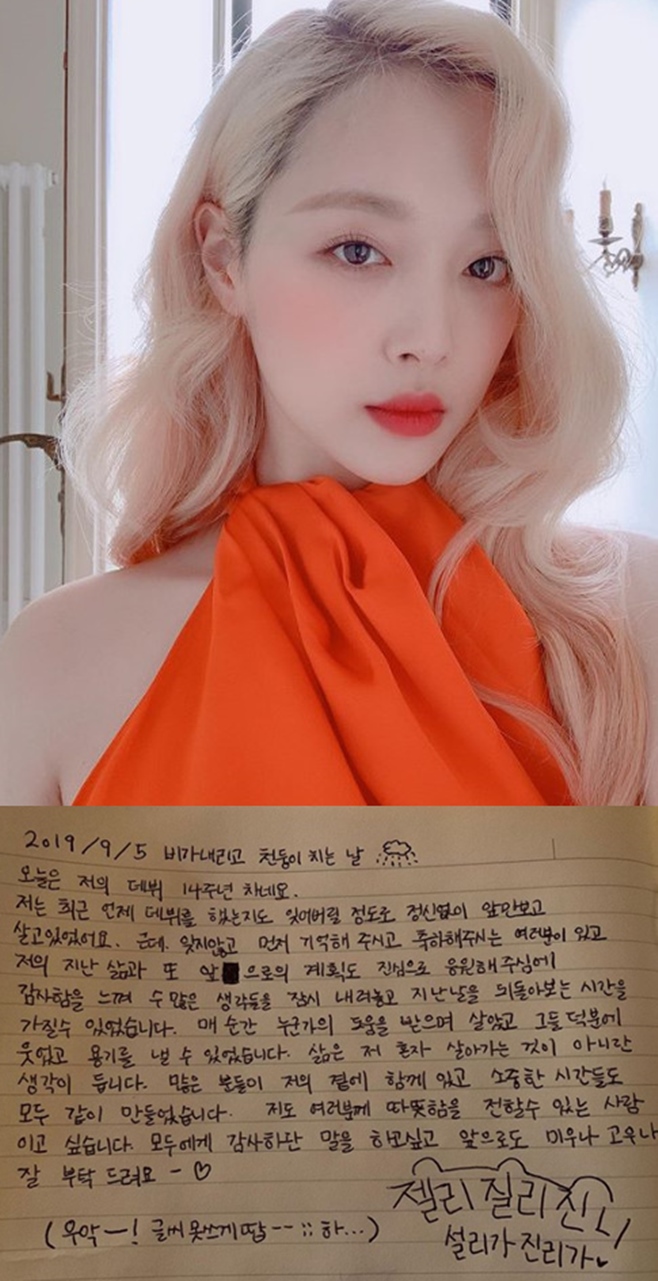 2019/9/5 비가내리고 천둥이 치는 날
오늘은 저의 데뷔 14주년 차네요.
저는 최근 언제 데뷔를 했는지도 잊어버릴 정도로 정신없이 앞만보고
살고있었어요. 근데, 잊지않고 먼저 기억해 주시고 축하해주시는 여러분이 있고
저의 지난 삶과 또 앞으로의 계획도 진심으로 응원해 주심에
감사함을 느껴 수많은 생각들을 잠시 내려놓고 지난날을 뒤돌아보는 시간을
가질수 있었습니다. 매 순간 누군가의 도움을 받으며 살았고 그들 덕분에
웃었고 용기를 낼 수 있었습니다. 삶은 저 혼자 살아가는 것이 아니란
생각이 듭니다. 많은 분들이 저의 곁에 함께 있고 소중한 시간들도
모두 같이 만들었습니다. 저도 여러분께 따뜻함을 전할수 있는 사람
이고 싶습니다. 모두에게 감사하단 말을 하고싶고 앞으로도 미우나 고우나
잘 부탁 드려요 ~ ♡
젤리 질리 진리
(우악-! 글씨 못쓰게땁--;; 하...)
설리가 진리가♥